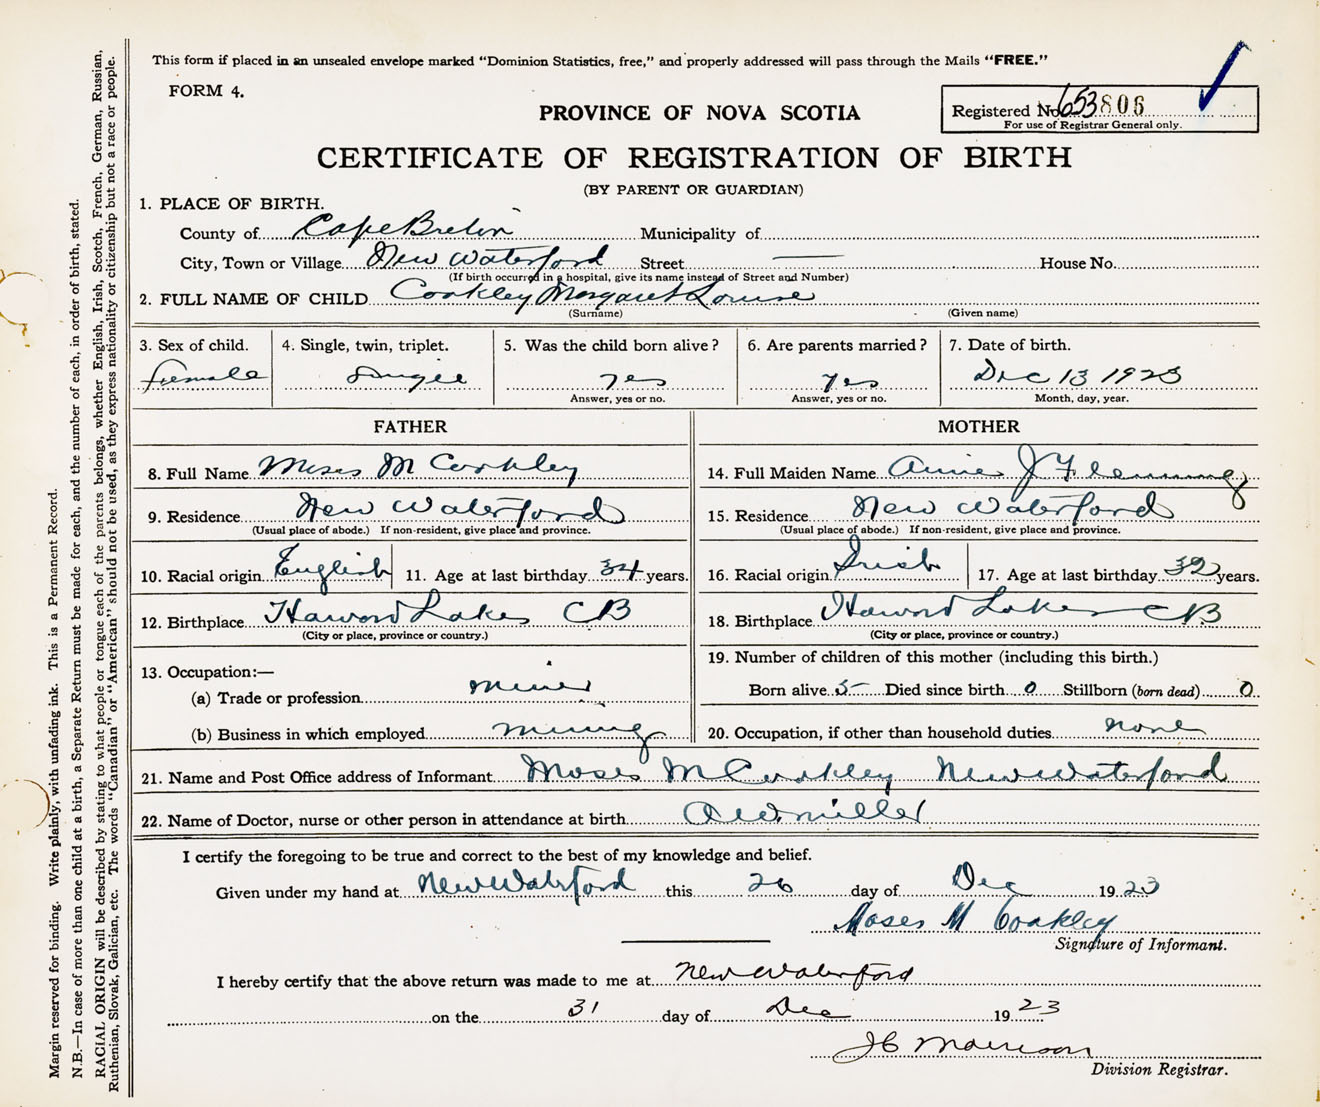 This form if placed in an unsealed envelope marked "Dominion Statistics, free," and properly addressed will pass through the Mails "FREE."
FORM 4.
Registered No. 653806
For use of Registrar General only.
PROVINCE OF NOVA SCOTIA
CERTIFICATE OF REGISTRATION OF BIRTH
(BY PARENT OR GUARDIAN)
1. PLACE OF BIRTH.
County of Cape Breton Municipality of
City, Town or Village New Waterford Street — House No.
(If birth occurred in a hospital, give its name instead of Street and Number)
2. FULL NAME OF CHILD Coakley Margaret Louise
(Surname) (Given name)
3. Sex of child. 4. Single, twin, triplet. 5. Was the child born alive? 6. Are parents married? 7. Date of birth.
female Single yes yes Dec 13 1923
Answer, yes or no. Answer, yes or no. Month, day, year.
FATHER MOTHER
8. Full Name Moses M Coakley 14. Full Maiden Name Annie J Flemming
9. Residence New Waterford 15. Residence New Waterford
(Usual place of abode.) If non-resident, give place and province. (Usual place of abode.) If non-resident, give place and province.
10. Racial origin English 11. Age at last birthday 34 years. 16. Racial origin Irish 17. Age at last birthday 32 years.
12. Birthplace Lakes CB 18. Birthplace Lakes CB
(City or place, province or country.) (City or place, province or country.)
13. Occupation:— 19. Number of children of this mother (including this birth.)
(a) Trade or profession miner Born alive 5 Died since birth 0 Stillborn (born dead) 0
(b) Business in which employed mining 20. Occupation, if other than household duties none
21. Name and Post Office address of Informant Moses M Coakley New Waterford
22. Name of Doctor, nurse or other person in attendance at birth miller
I certify the foregoing to be true and correct to the best of my knowledge and belief.
Given under my hand at New Waterford this 26 day of Dec 1923
Moses M Coakley
Signature of Informant.
I hereby certify that the above return was made to me at New Waterford
on the 31 day of Dec 1923
J C Morrison
Division Registrar.
Margin reserved for binding. Write plainly, with unfading ink. This is a Permanent Record.
N.B.—In case of more than one child at a birth, a Separate Return must be made for each, and the number of each, in order of birth, stated.
RACIAL ORIGIN will be described by stating to what people or tongue each of the parents belongs, whether English, Irish, Scotch, French, German, Russian,
Ruthenian, Slovak, Galician, etc. The words "Canadian" or "American" should not be used, as they express nationality or citizenship but not a race or people.